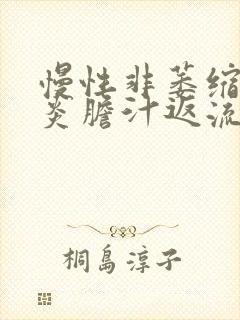 慢性非萎缩
炎胆汁返流
桐島淳子